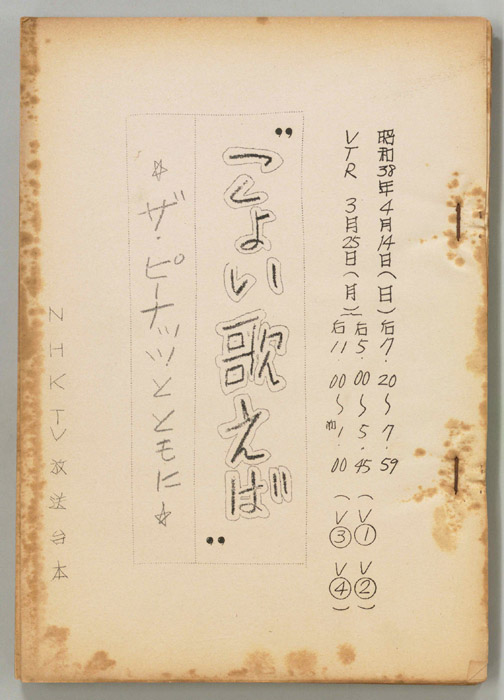 昭和38年4月14日(日)后7.20〜7.59
VTR 3月25日(月) 后5.00〜5.45 (V① V②)
后11.00〜 1.00 (V③ V④)
"こよい歌えば"
☆ザ・ピーナッツとともに☆
NHKTV放送台本